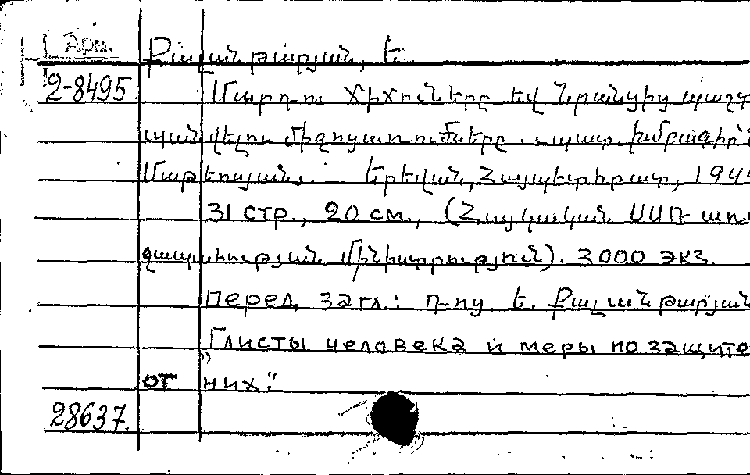 Арм.
Քալանթարյան, Ե.
2-8495
Մարդու ճիճուները եվ նրանցից պաշտ
պանվելու միջոցառումները. պատ. խմբագիր՝
Մաթևոսյան. Երեվան, Հայպետհրատ, 194
31 стр., 20 см., (Հայկական ՍՍՌ առող
ջապահության մինիստրություն). 3000 экз.
перед. загл.: դ-ոց. Ե. Քալանթարյան
"Глисты человека и меры по защите
от них."
28637.